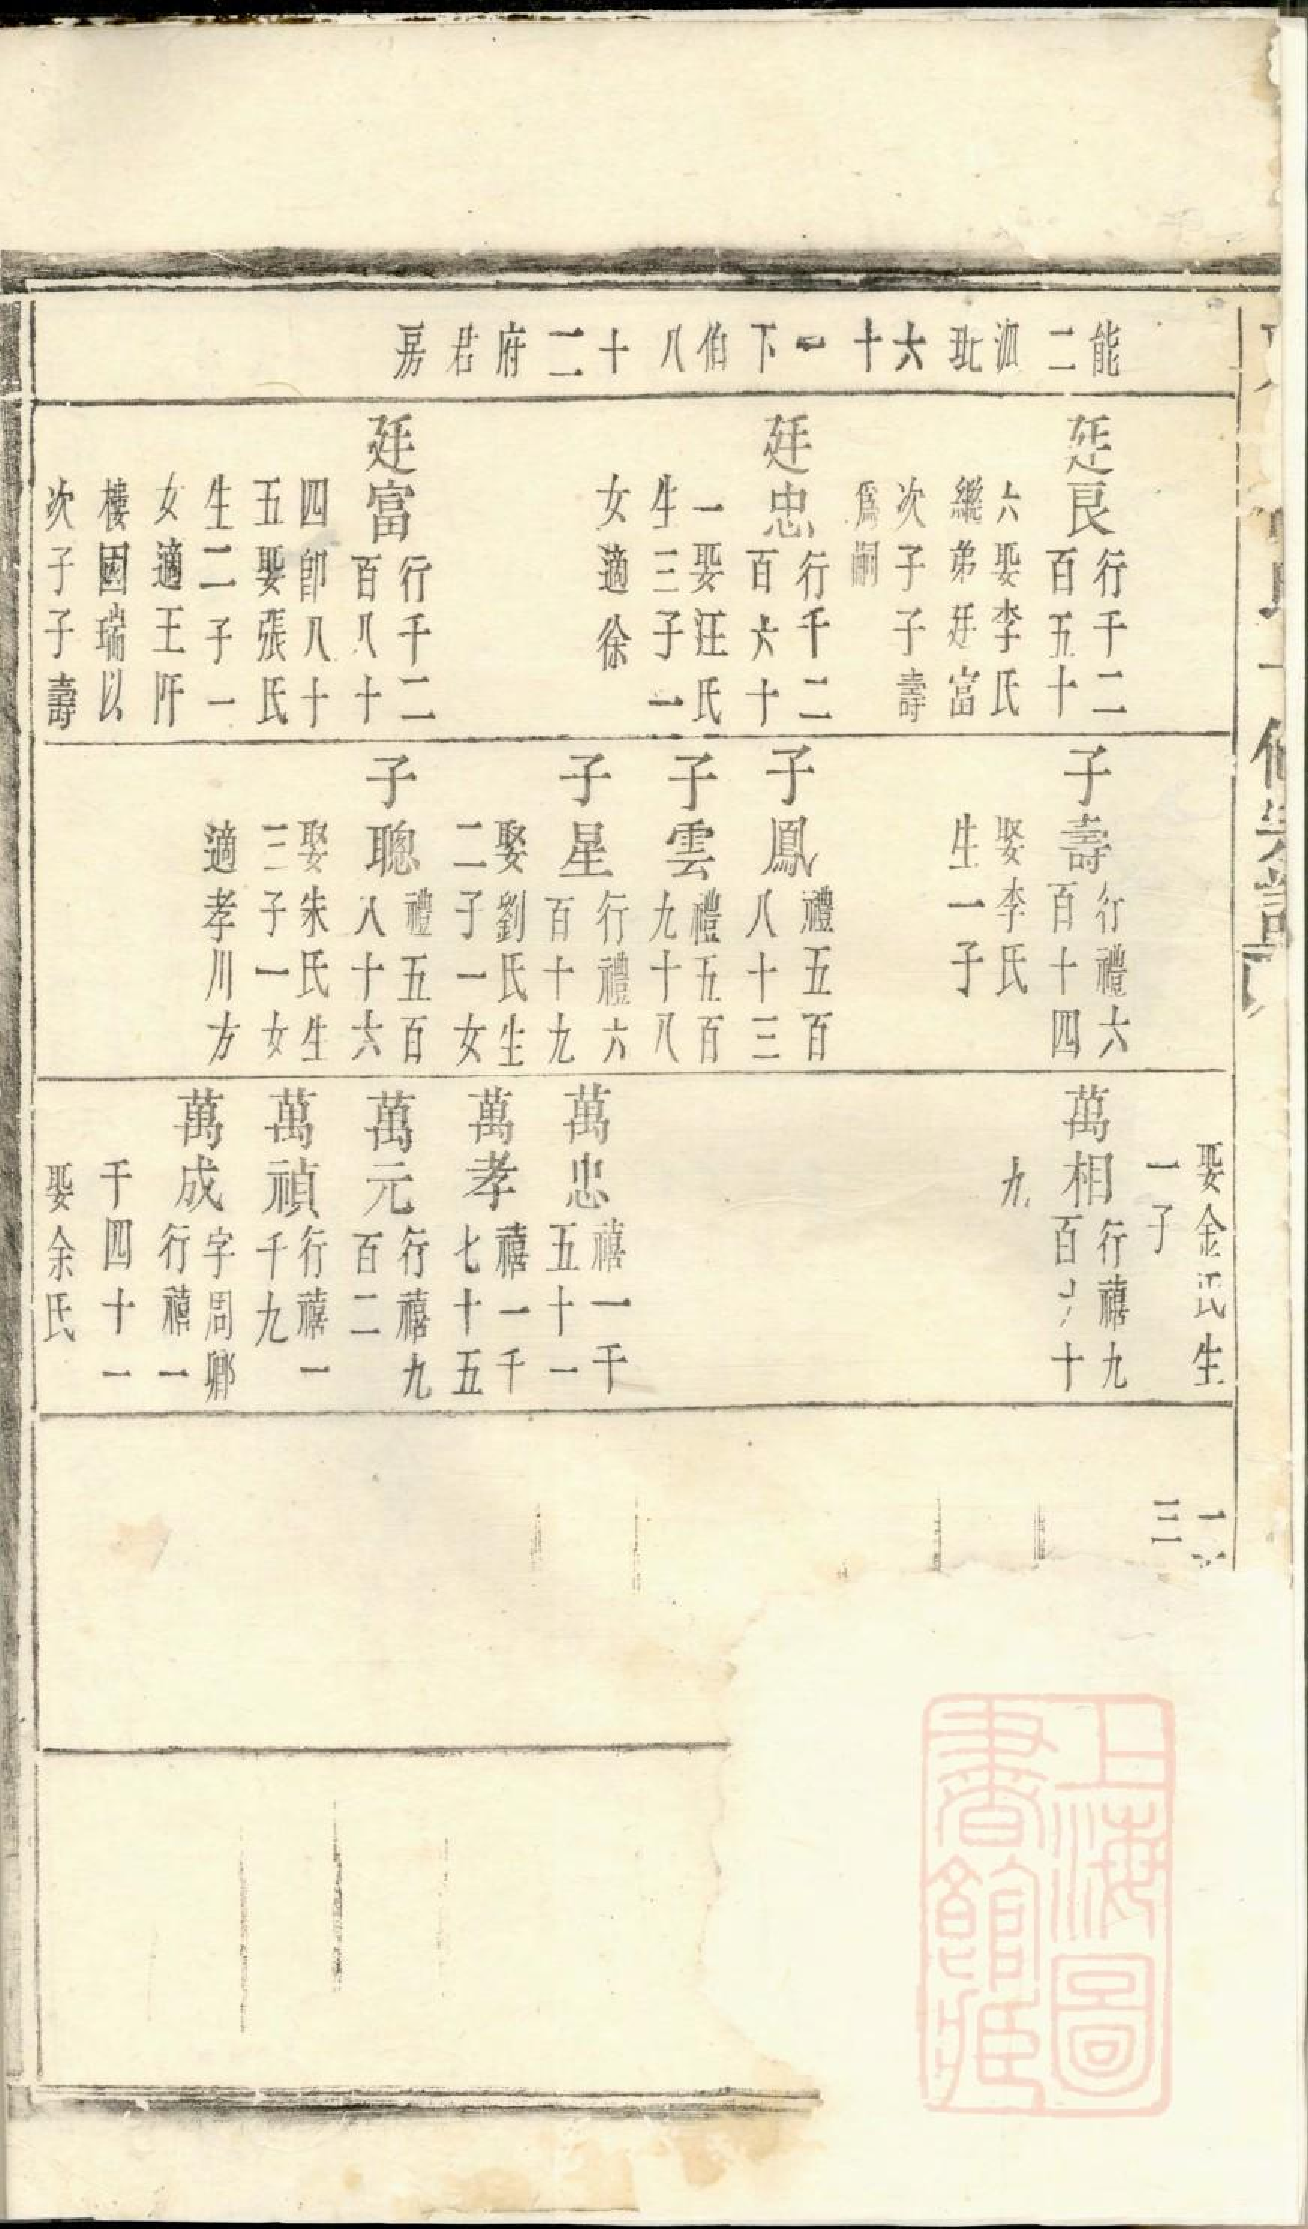 能二泗玭六十一下伯八十二府君房
廷良
行千二
百五十
六娶李氏
繼弟廷富
次子子壽
爲嗣
廷忠
行千二
百六十
一娶汪氏
生三子一
女適徐
廷富
行千二
百八十
四卽八十
五娶張氏
生二子一
女適王阡
樓國瑞以
次子子壽
子壽
行禮六
百十四
娶李氏
生一子
子鳳
禮五百
八十三
子雲
禮五百
九十八
子星
行禮六
百十九
娶劉氏生
二子一女
子聰
禮五百
八十六
娶朱氏生
三子一女
適孝川方
娶金氏生
一子
萬相
行禧九
百 十
九
萬忠
禧一千
五十一
萬孝
禧一千
七十五
萬元
行禧九
百二
萬禎
行禧一
千九
萬成
字周卿
行禧一
千四十一
娶余氏
三
上海圖
書館藏